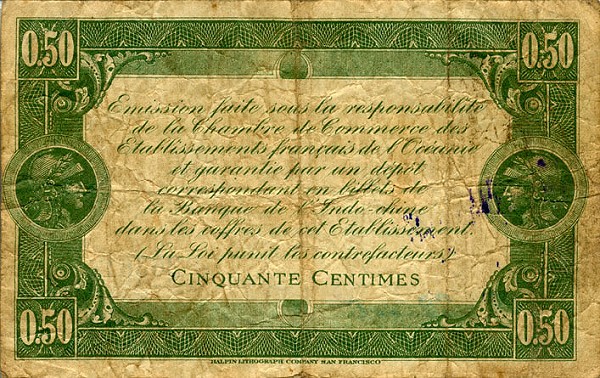 0.50 0.50
Emission faite sous la responsabilité
de la Chambre de Commerce des
Etablissements français de l'Océanie
et garantie par un dépôt
correspondant en billets de
la Banque de l'Indo-chine
dans les coffres de cet Etablissement.
(La Loi punit les contrefacteurs)
CINQUANTE CENTIMES
0.50 0.50
HALPIN LITHOGRAPH COMPANY SAN FRANCISCO